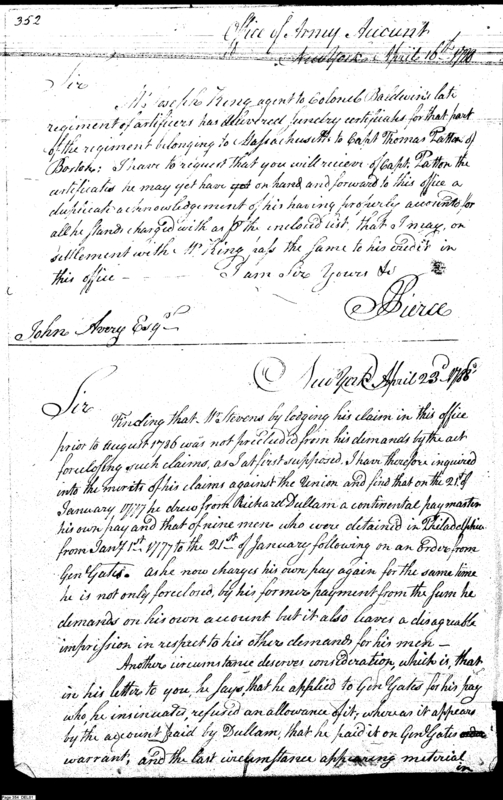 352
Office of Army Accounts
New York April 16th 1788
Sir
Mr. Joseph King agent to Colonel Baldwin's late
regiment of artificers has delivered sundry certificates for that part
of the regiment belonging to Massachusetts to Capt Thomas Patton of
Boston: I have to request that you will receive of Capt Patton the
certificates he may yet have yet on hand and forward to this office a
duplicate acknowledgement of his having properly accounted for
all he stands charged with as pr the enclosed list, that I may, on
settlement with Mr. King pass the same to his credit in
this office — I am Sir Yours &c
JPierce
John Avery Esqr
New York April 23d 1788
Sir
Finding that Mr Stevens by lodging his claim in this office
prior to August 1786 was not precluded from his demands by the act
foreclosing such claims, as I at first supposed. I have therefore inquired
into the merits of his claims against the Union and find that on the 21st of
January 1777 he drew from Richard Dallam a continental paymaster
his own pay and that of nine men who were detained in Philadelphia
from Jany 1st 1777 to the 21st of January following on an order from
Genl Gates. As he now charges his own pay again for the same time
he is not only foreclosed, by his former payment from the sum he
demands on his own account but it also leaves a disagreable
impression in respect to his other demands for his men —
Another circumstance deserves consideration, which is, that
in his letter to you, he says that he applied to Genl Gates for his pay
who, he insinuates, refused an allowance of it, whereas it appears
by the account paid by Dallam, that he paid it on Genl Gates
warrant, and the last circumstance appearing meterial
in
Page 354 DEL01